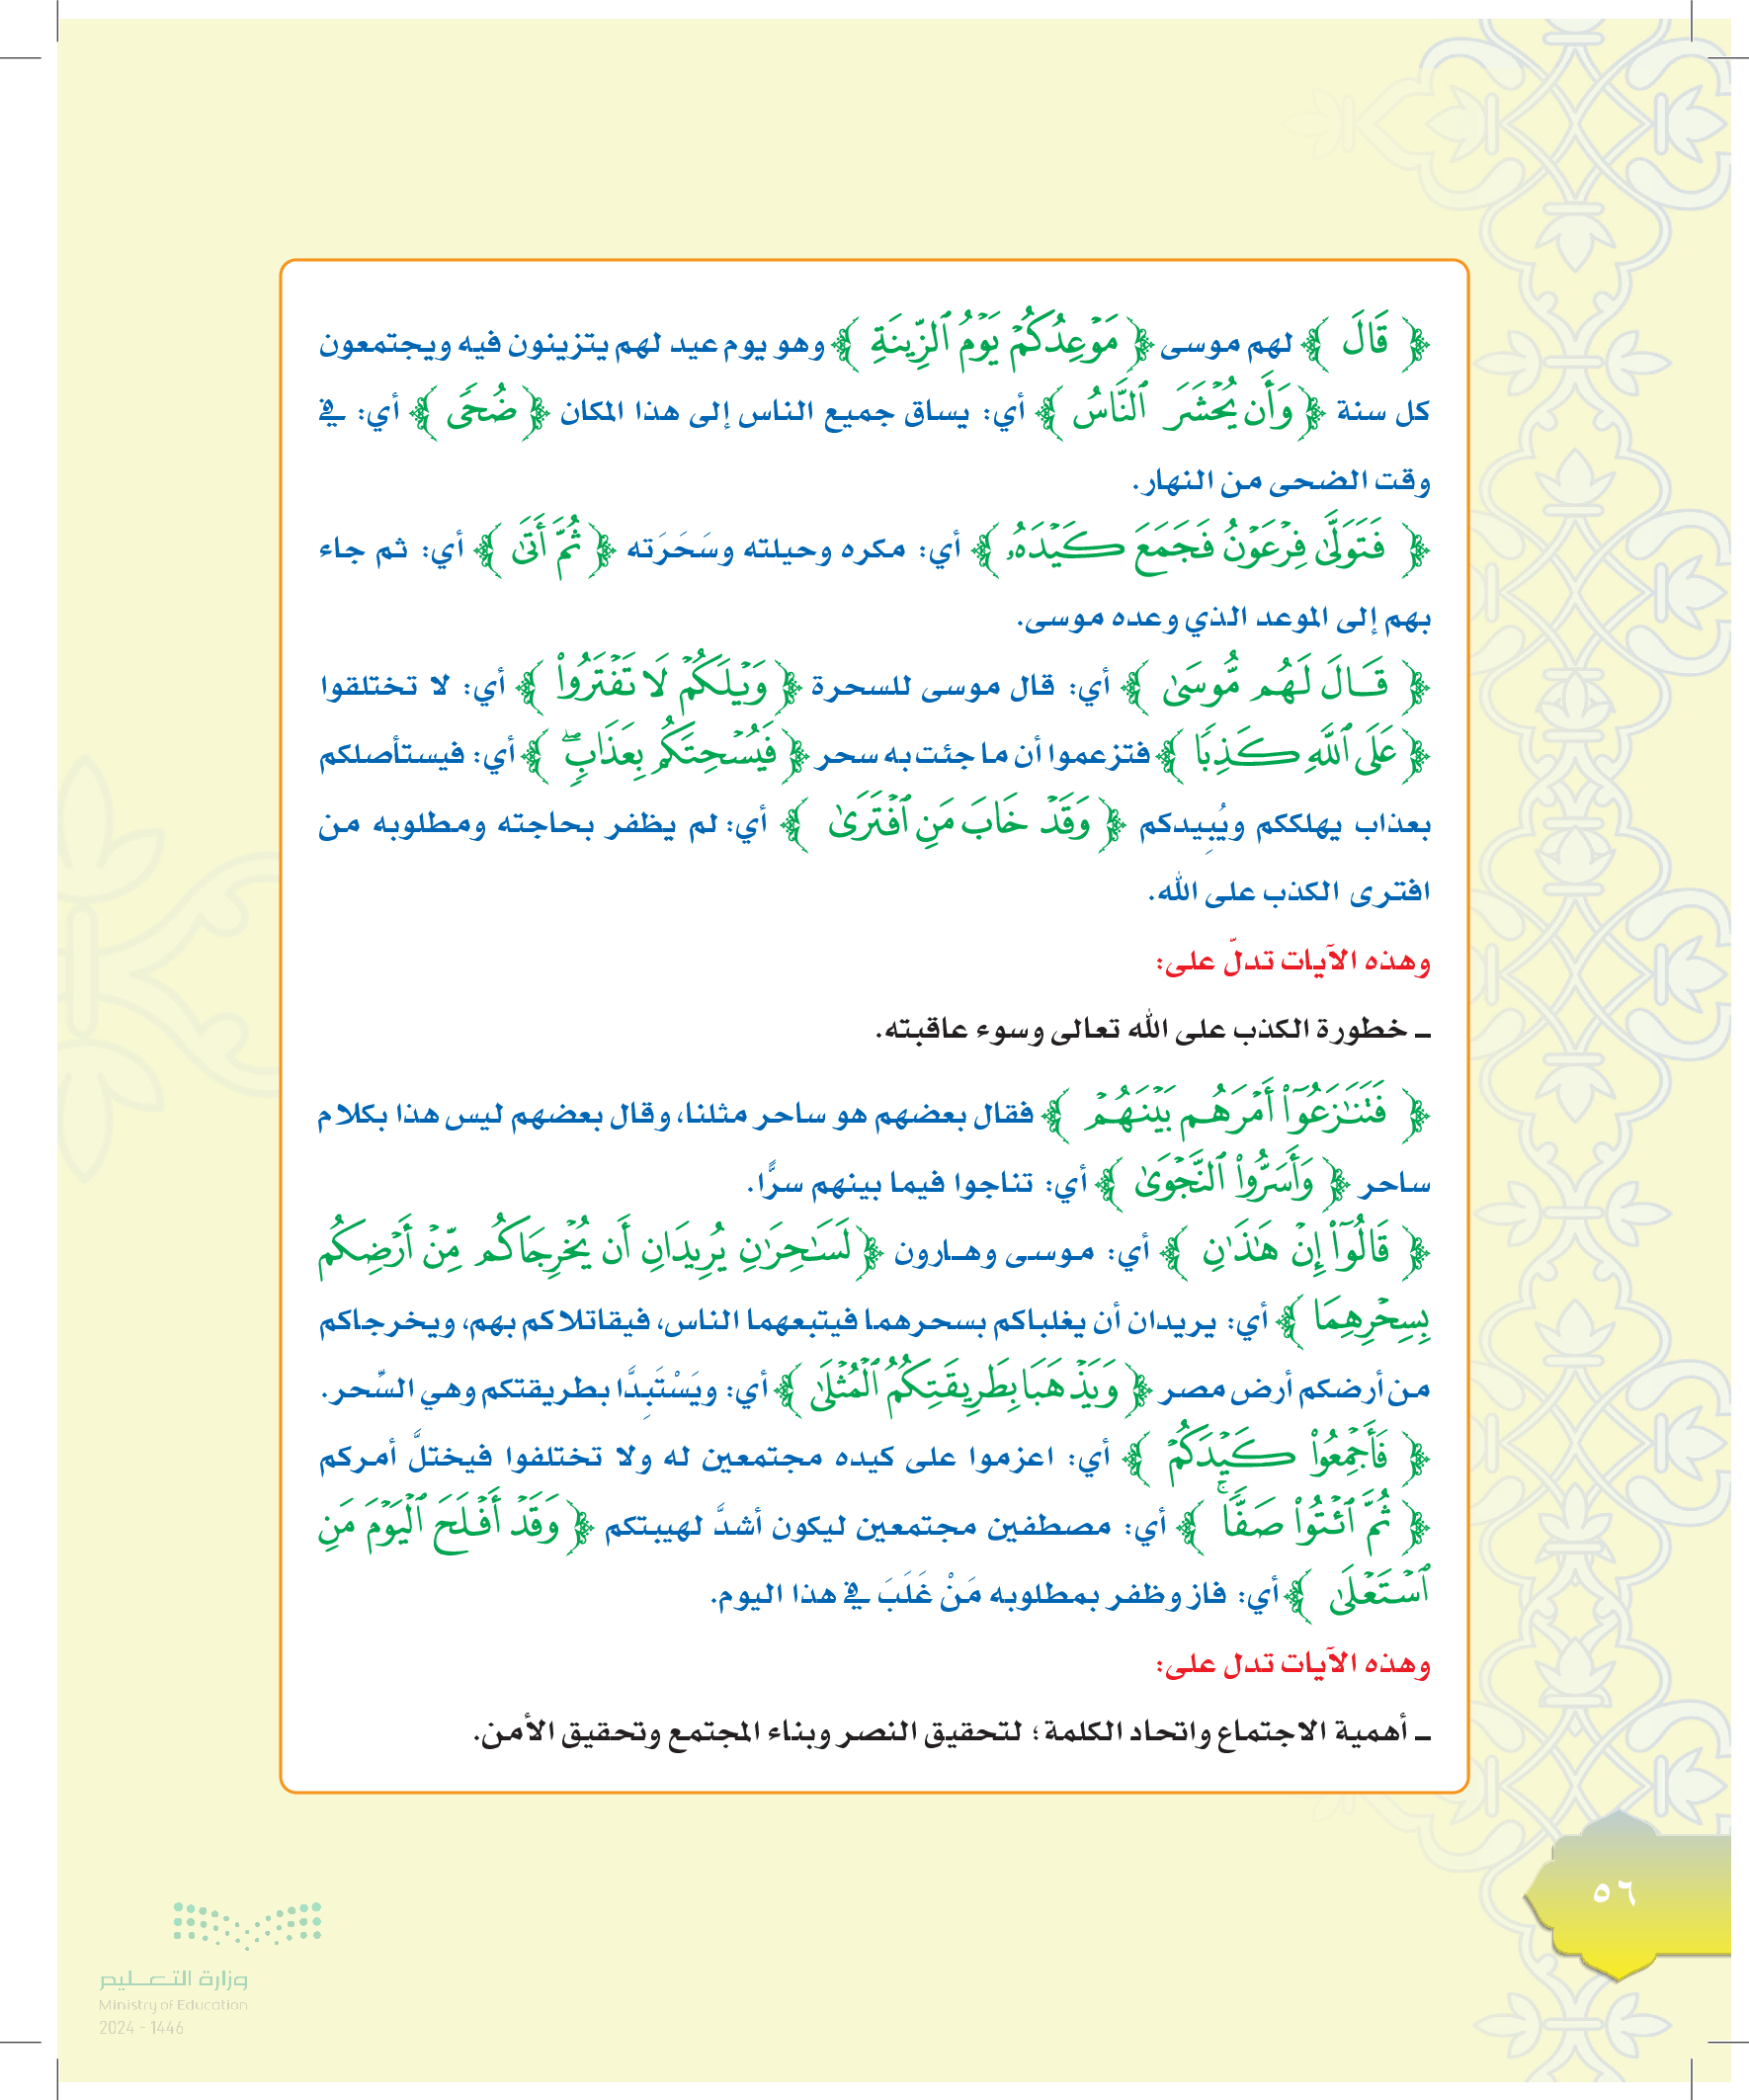 ﴿ قَالَ ﴾ لهم موسى ﴿ مَوْعِدُكُمْ يَوْمُ ٱلزِّينَةِ ﴾ وهو يوم عيد لهم يتزينون فيه ويجتمعون
كل سنة ﴿ وَأَن يُحْشَرَ ٱلنَّاسُ ﴾ أي: يساق جميع الناس إلى هذا المكان ﴿ ضُحًى ﴾ أي: في
وقت الضحى من النهار.
﴿ فَتَوَلَّىٰ فِرْعَوْنُ فَجَمَعَ كَيْدَهُۥ ﴾ أي: مكره وحيلته وسَحَرَته ﴿ ثُمَّ أَتَىٰ ﴾ أي: ثم جاء
بهم إلى الموعد الذي وعده موسى.
﴿ قَالَ لَهُم مُّوسَىٰ ﴾ أي: قال موسى للسحرة ﴿ وَيْلَكُمْ لَا تَفْتَرُوا۟ ﴾ أي: لا تختلقوا
﴿ عَلَى ٱللَّهِ كَذِبًا ﴾ فتزعموا أن ما جئت به سحر ﴿ فَيُسْحِتَكُم بِعَذَابٍۖ ﴾ أي: فيستأصلكم
بعذاب يهلككم ويُبِيدكم ﴿ وَقَدْ خَابَ مَنِ ٱفْتَرَىٰ ﴾ أي: لم يظفر بحاجته ومطلوبه من
افترى الكذب على الله.
وهذه الآيات تدلّ على:
ـ خطورة الكذب على الله تعالى وسوء عاقبته.
﴿ فَتَنَـٰزَعُوٓا۟ أَمْرَهُم بَيْنَهُمْ ﴾ فقال بعضهم هو ساحر مثلنا، وقال بعضهم ليس هذا بكلام
ساحر ﴿ وَأَسَرُّوا۟ ٱلنَّجْوَىٰ ﴾ أي: تناجوا فيما بينهم سرًّا.
﴿ قَالُوٓا۟ إِنْ هَـٰذَٰنِ ﴾ أي: موسى وهـارون ﴿ لَسَـٰحِرَٰنِ يُرِيدَانِ أَن يُخْرِجَاكُم مِّنْ أَرْضِكُم
بِسِحْرِهِمَا ﴾ أي: يريدان أن يغلباكم بسحرهما فيتبعهما الناس، فيقاتلاكم بهم، ويخرجاكم
من أرضكم أرض مصر ﴿ وَيَذْهَبَا بِطَرِيقَتِكُمُ ٱلْمُثْلَىٰ ﴾ أي: ويَسْتَبِدَّا بطريقتكم وهي السِّحر.
﴿ فَأَجْمِعُوا۟ كَيْدَكُمْ ﴾ أي: اعزموا على كيده مجتمعين له ولا تختلفوا فيختلَّ أمركم
﴿ ثُمَّ ٱئْتُوا۟ صَفًّاۚ ﴾ أي: مصطفين مجتمعين ليكون أشدَّ لهيبتكم ﴿ وَقَدْ أَفْلَحَ ٱلْيَوْمَ مَنِ
ٱسْتَعْلَىٰ ﴾ أي: فاز وظفر بمطلوبه مَنْ غَلَبَ في هذا اليوم.
وهذه الآيات تدل على:
ـ أهمية الاجتماع واتحاد الكلمة؛ لتحقيق النصر وبناء المجتمع وتحقيق الأمن.
٥٦
وزارة التعـليم
Ministry of Education
2024 - 1446